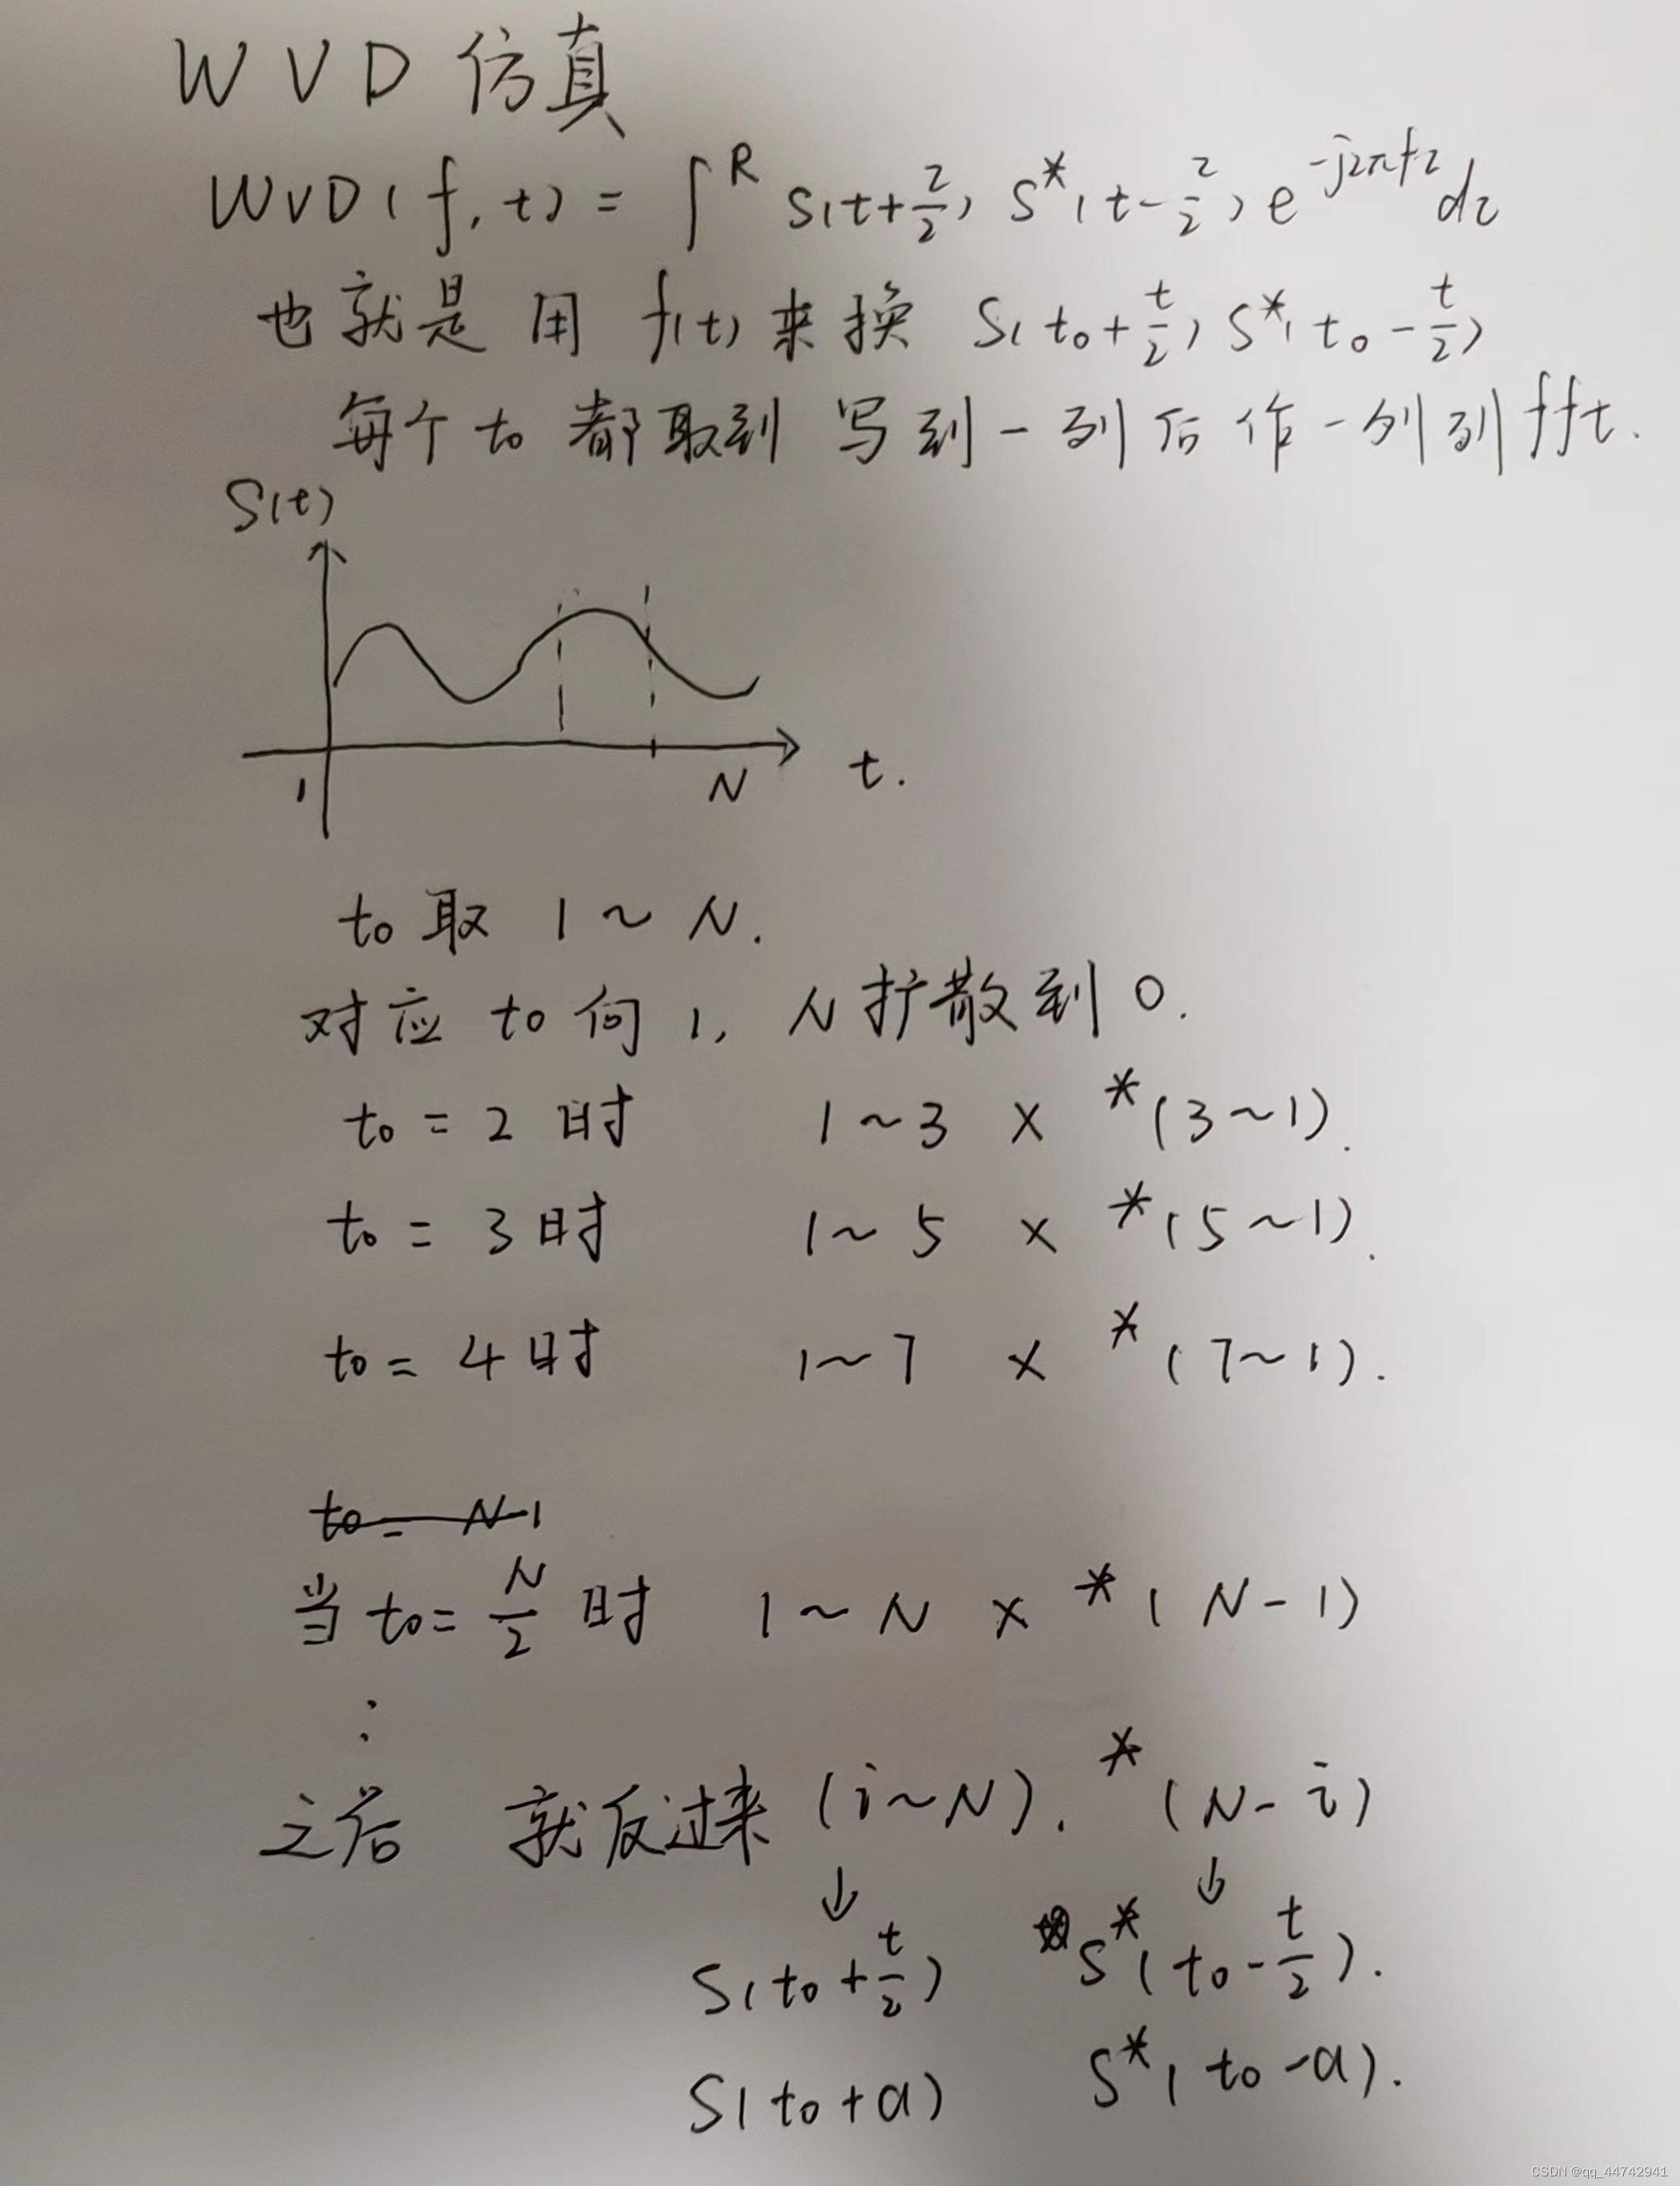 WVD 仿真
WVD(f,t) = ∫^R s(t+τ/2) s*(t-τ/2) e^{-j2πfτ} dτ
也就是 用 f(t) 来换 S(t₀+t/2) S*(t₀-t/2)
每个 t₀ 都取到 写到一列后 作一列列 fft.
S(t)
1 N t.
t₀ 取 1 ~ N.
对应 t₀ 向 1, N 扩散到 0.
t₀ = 2 时 1~3 × *(3~1).
t₀ = 3 时 1~5 × *(5~1).
t₀ = 4 时 1~7 × *(7~1).
t₀ = N-1
当 t₀= N/2 时 1~N × *(N-1)
⋮
之后 就反过来 (i~N). *(N-i)
↓ ↓
S(t₀+t/2) S*(t₀-t/2).
S(t₀+a) S*(t₀-a).
CSDN @qq_44742941